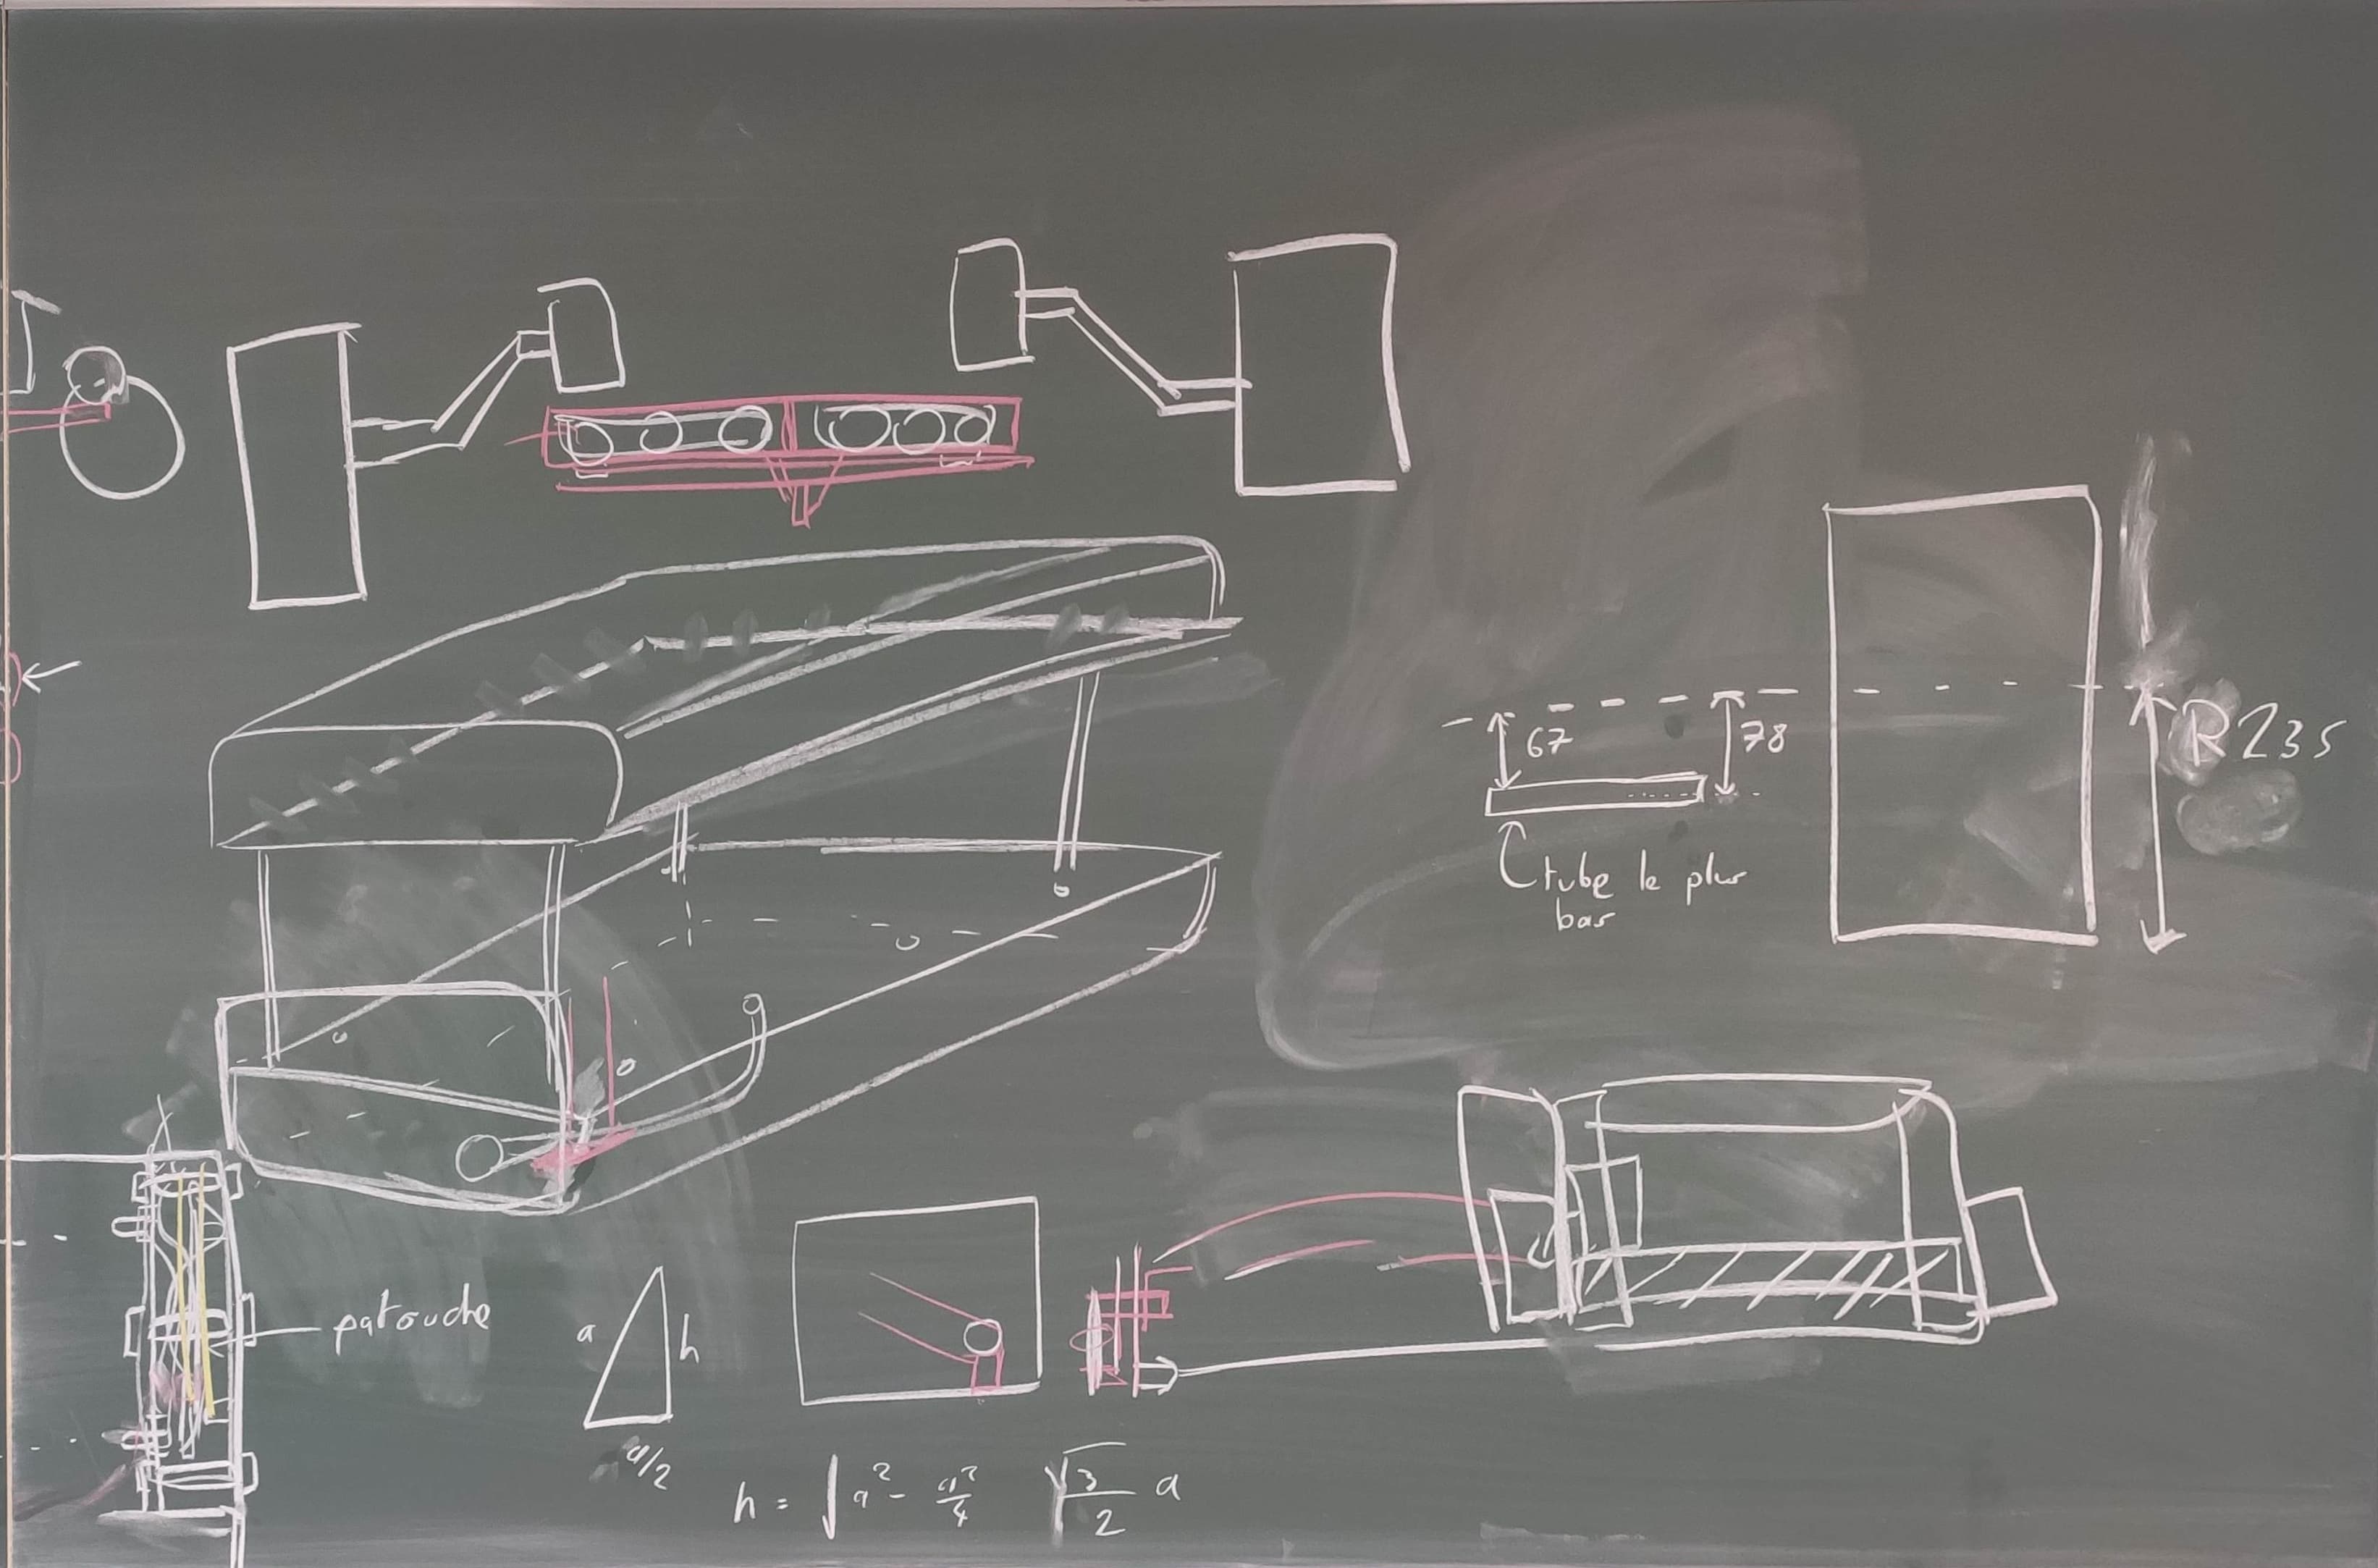 67
78
R235
tube le plus
bas
patouche
a
h
a/2
h = √a² - a²/4   √3/2 a